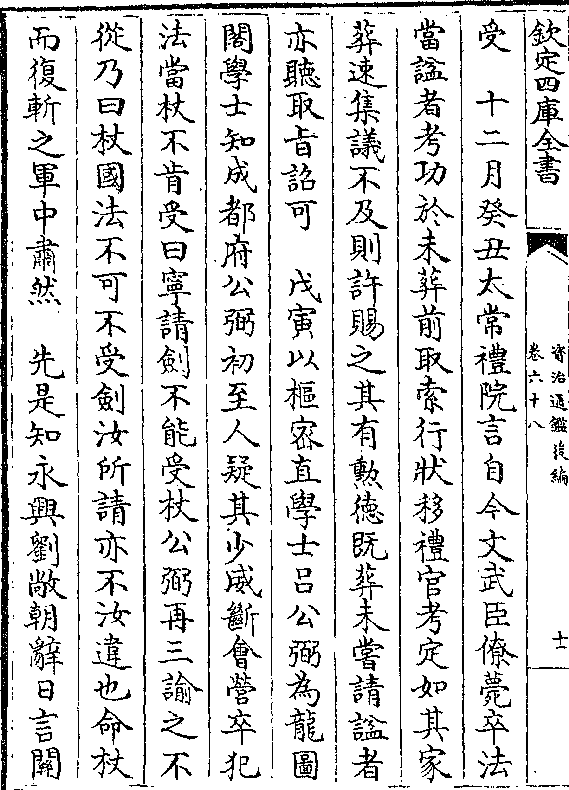 欽定四庫全書
資治通鑑後編
卷六十八
十一
受　十二月癸丑太常禮院言自今文武臣僚薨卒法
當諡者考功於未葬前取索行狀移禮官考定如其家
葬速集議不及則許賜之其有勲德既葬未嘗請諡者
亦聽取旨詔可　戊寅以樞密直學士吕公弼為龍圖
閣學士知成都府公弼初至人疑其少威斷會營卒犯
法當杖不肯受曰寧請劍不能受杖公弼再三諭之不
從乃曰杖國法不可不受劍汝所請亦不汝違也命杖
而復斬之軍中肅然　先是知永興劉敞朝辭日言關